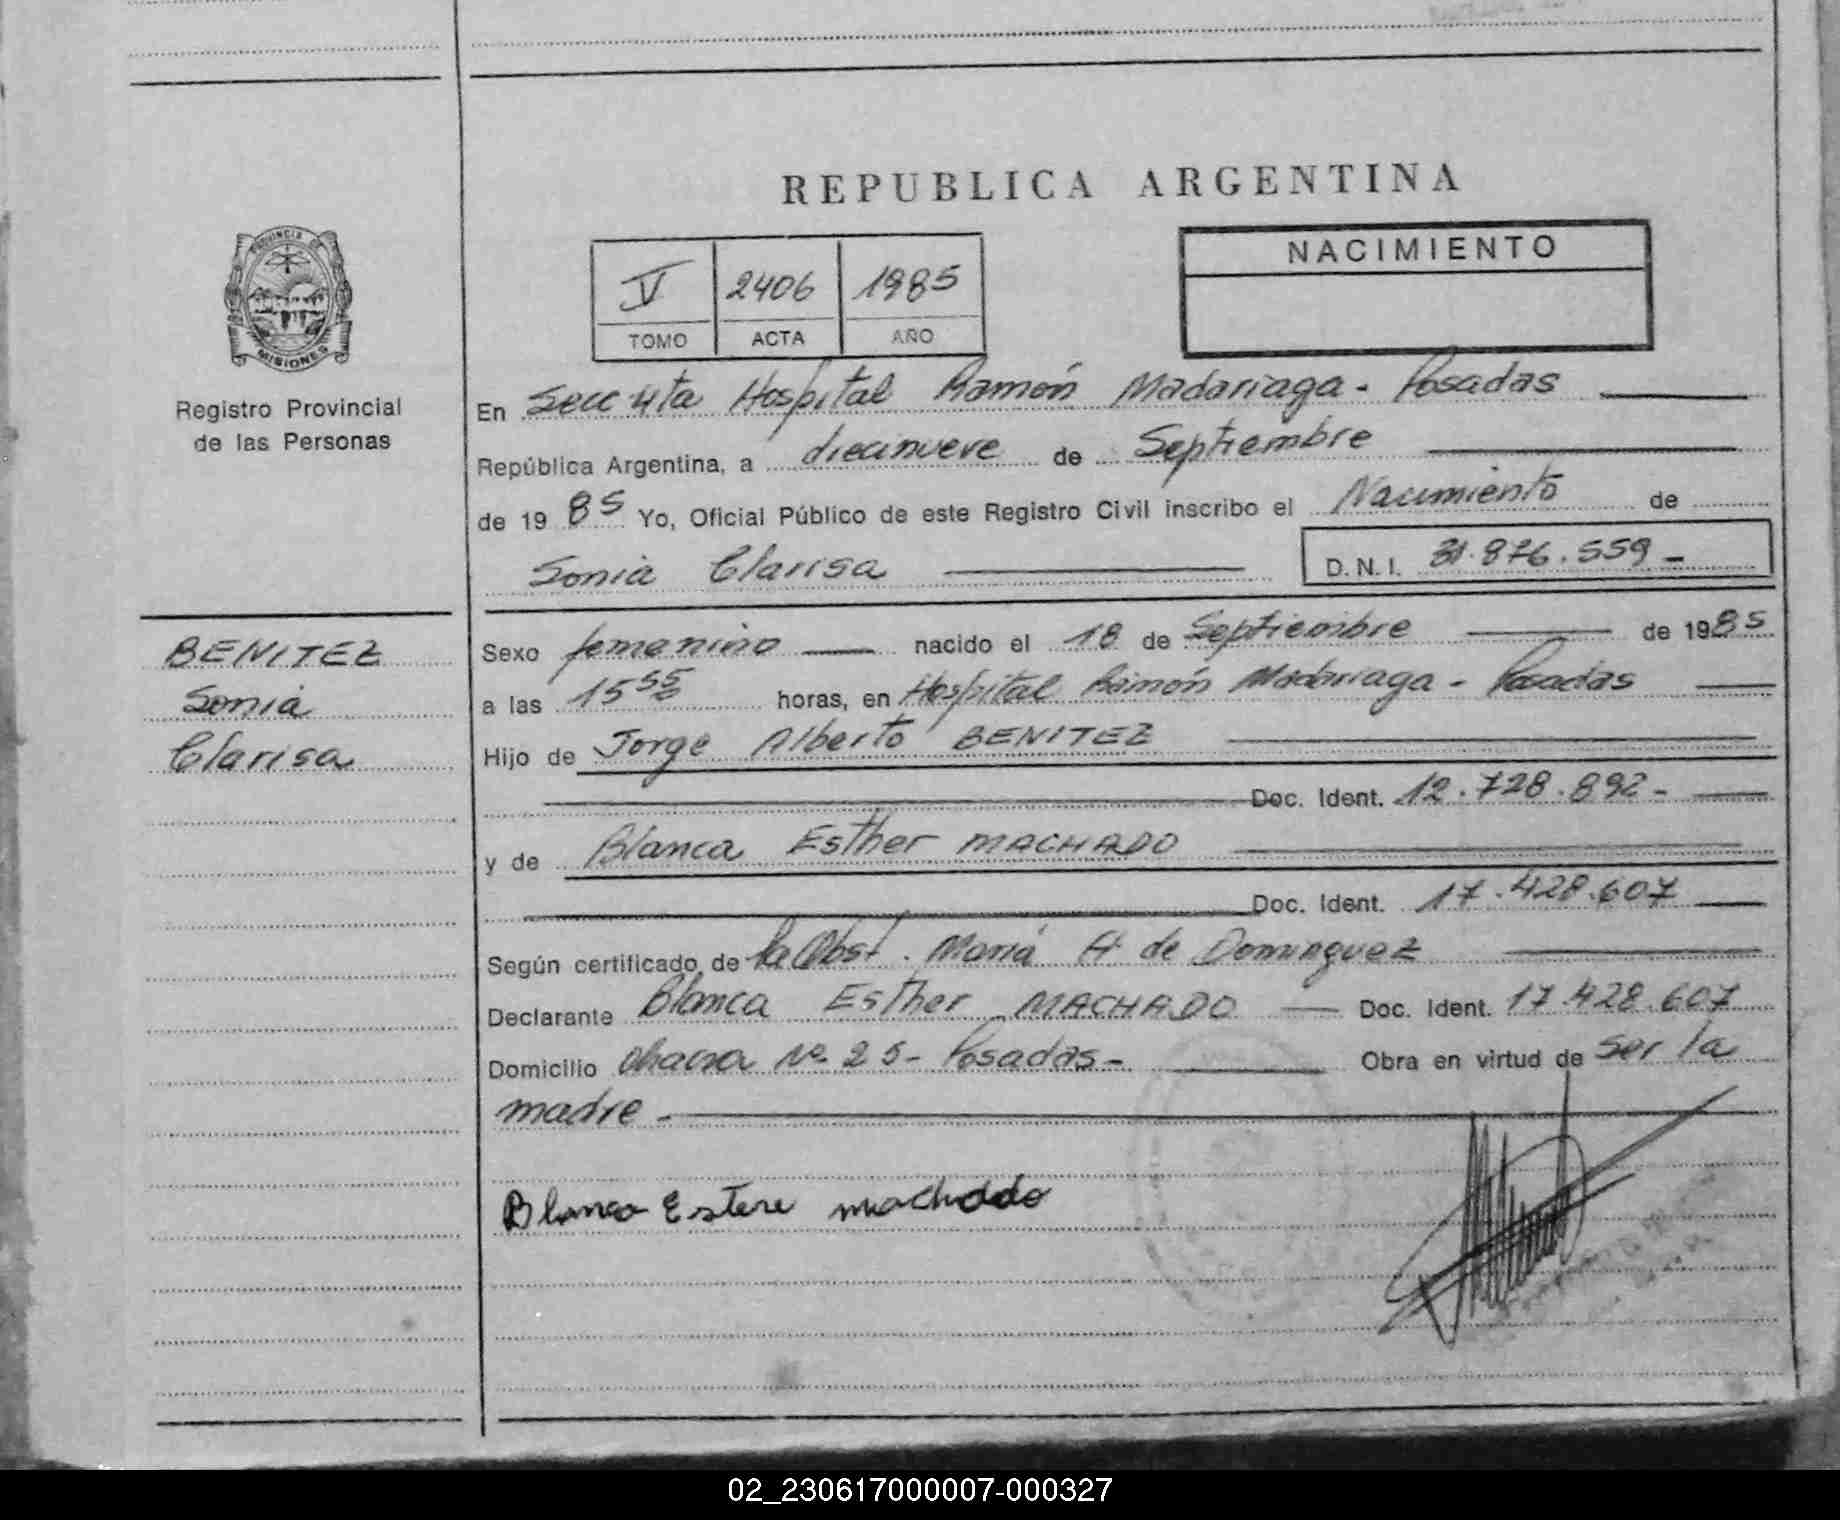 REPUBLICA ARGENTINA
PROVINCIA DE
MISIONES
Registro Provincial
de las Personas
V 2406 1985
TOMO ACTA AÑO
NACIMIENTO
En Secc 4ta Hospital Ramón Madariaga - Posadas
República Argentina, a diecinueve de Septiembre
de 1985 Yo, Oficial Público de este Registro Civil inscribo el Nacimiento de
Sonia Clarisa D.N.I. 31.876.559-
BENITEZ
Sonia
Clarisa
Sexo femenino nacido el 18 de Septiembre de 1985
a las 15 55 horas, en Hospital Ramón Madariaga - Posadas
Hijo de Jorge Alberto BENITEZ
Doc. Ident. 12.728.892-
y de Blanca Esther MACHADO
Doc. Ident. 17.428.607
Según certificado de la Obst. María A de Dominguez
Declarante Blanca Esther MACHADO Doc. Ident. 17.428.607
Domicilio chacra Nº 25- Posadas- Obra en virtud de ser la
madre-
Blanca Estere machado
02_230617000007-000327